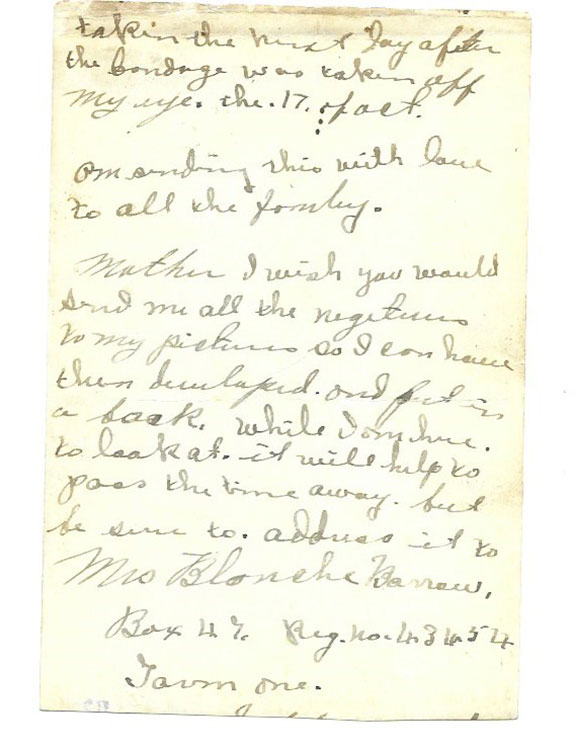 takin the next Day after
the bondage was taken off
my eye. the. 17. of oct.
om sending this with love
to all the fomley.
Mother I wish you would
send me all the negetives
to my pictures so I con have
them developed. and put in
a book. while I om here.
to look at. it will help to
pass the time away. but
be sure to. address it to
Mrs Blonche Barrow,
Box 47. Reg. no. 43454
Farm one.